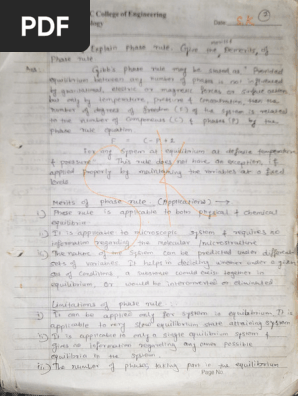 PDF
C College of Engineering
ology
Date
Explain Phase rule. Give merits, Demerits, of
Phase rule
Ans: Gibb's Phase rule may be stated as " Provided
equilibrium between any number of phases is not influenced
by gravitational, electric or magnetic forces or surface action
but only by temperature, pressure & concentration then the
number of degrees of freedom (F) of the system is related
to the number of components (C) & phases (P) by the
phase rule equation
F = C - P + 2
For any system at equilibrium at definite temperature
& pressure. This rule does not have an exception, if
applied properly by maintaining the variables at a fixed
Merits of phase rule (Applications) →
i) Phase rule is applicable to both physical & chemical
equilibria.
ii) It is applicable to microscopic system & requires no
information regarding the molecular/microstructure
iii) The nature of the system can be predicted under different
set of variables. It helps in deciding whether under a given
set of conditions, a substance would exists together in
equilibrium or would be interconverted or eliminated
Limitations of phase rule
i) It can be applied only for system in equilibrium. It is
applicable to very slow equilibrium state attaining system
ii) It is applicable to only a single equilibrium system &
gives no information regarding any other possible
equilibria to the system
iii) The number of phases taking part in an equilibrium
Page No.